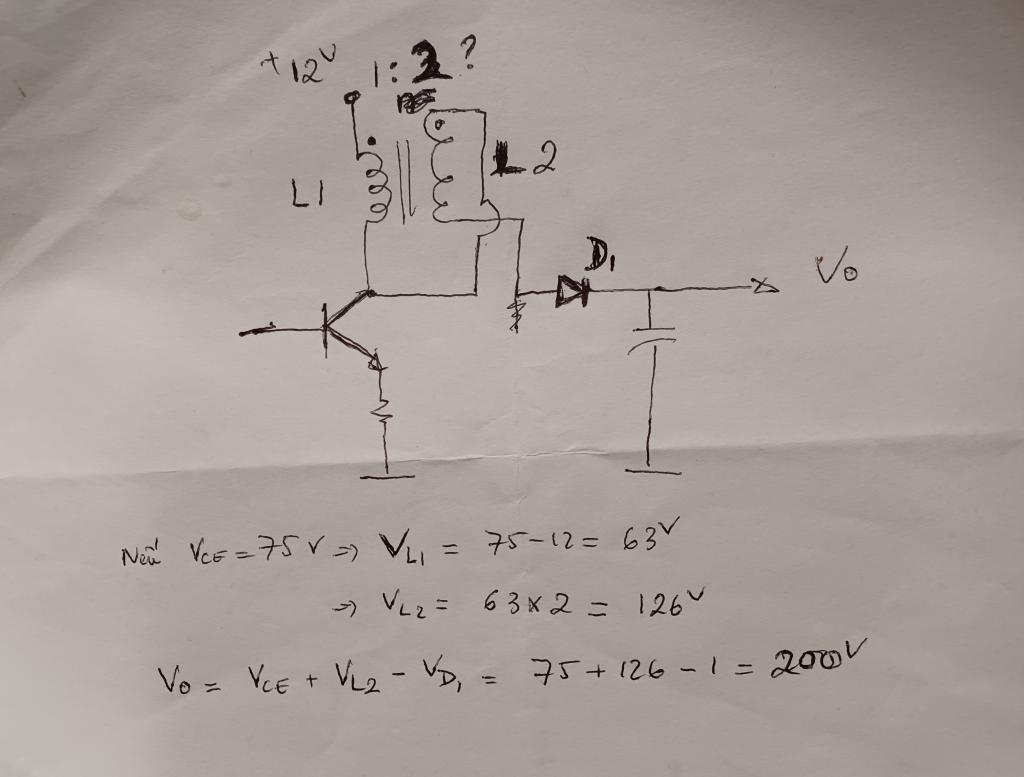 +12V
1:2?
L1
L2
D1
Vo
Nếu VCE = 75V => VL1 = 75-12 = 63V
=> VL2 = 63x2 = 126V
Vo = VCE + VL2 - VD1 = 75+126-1 = 200V